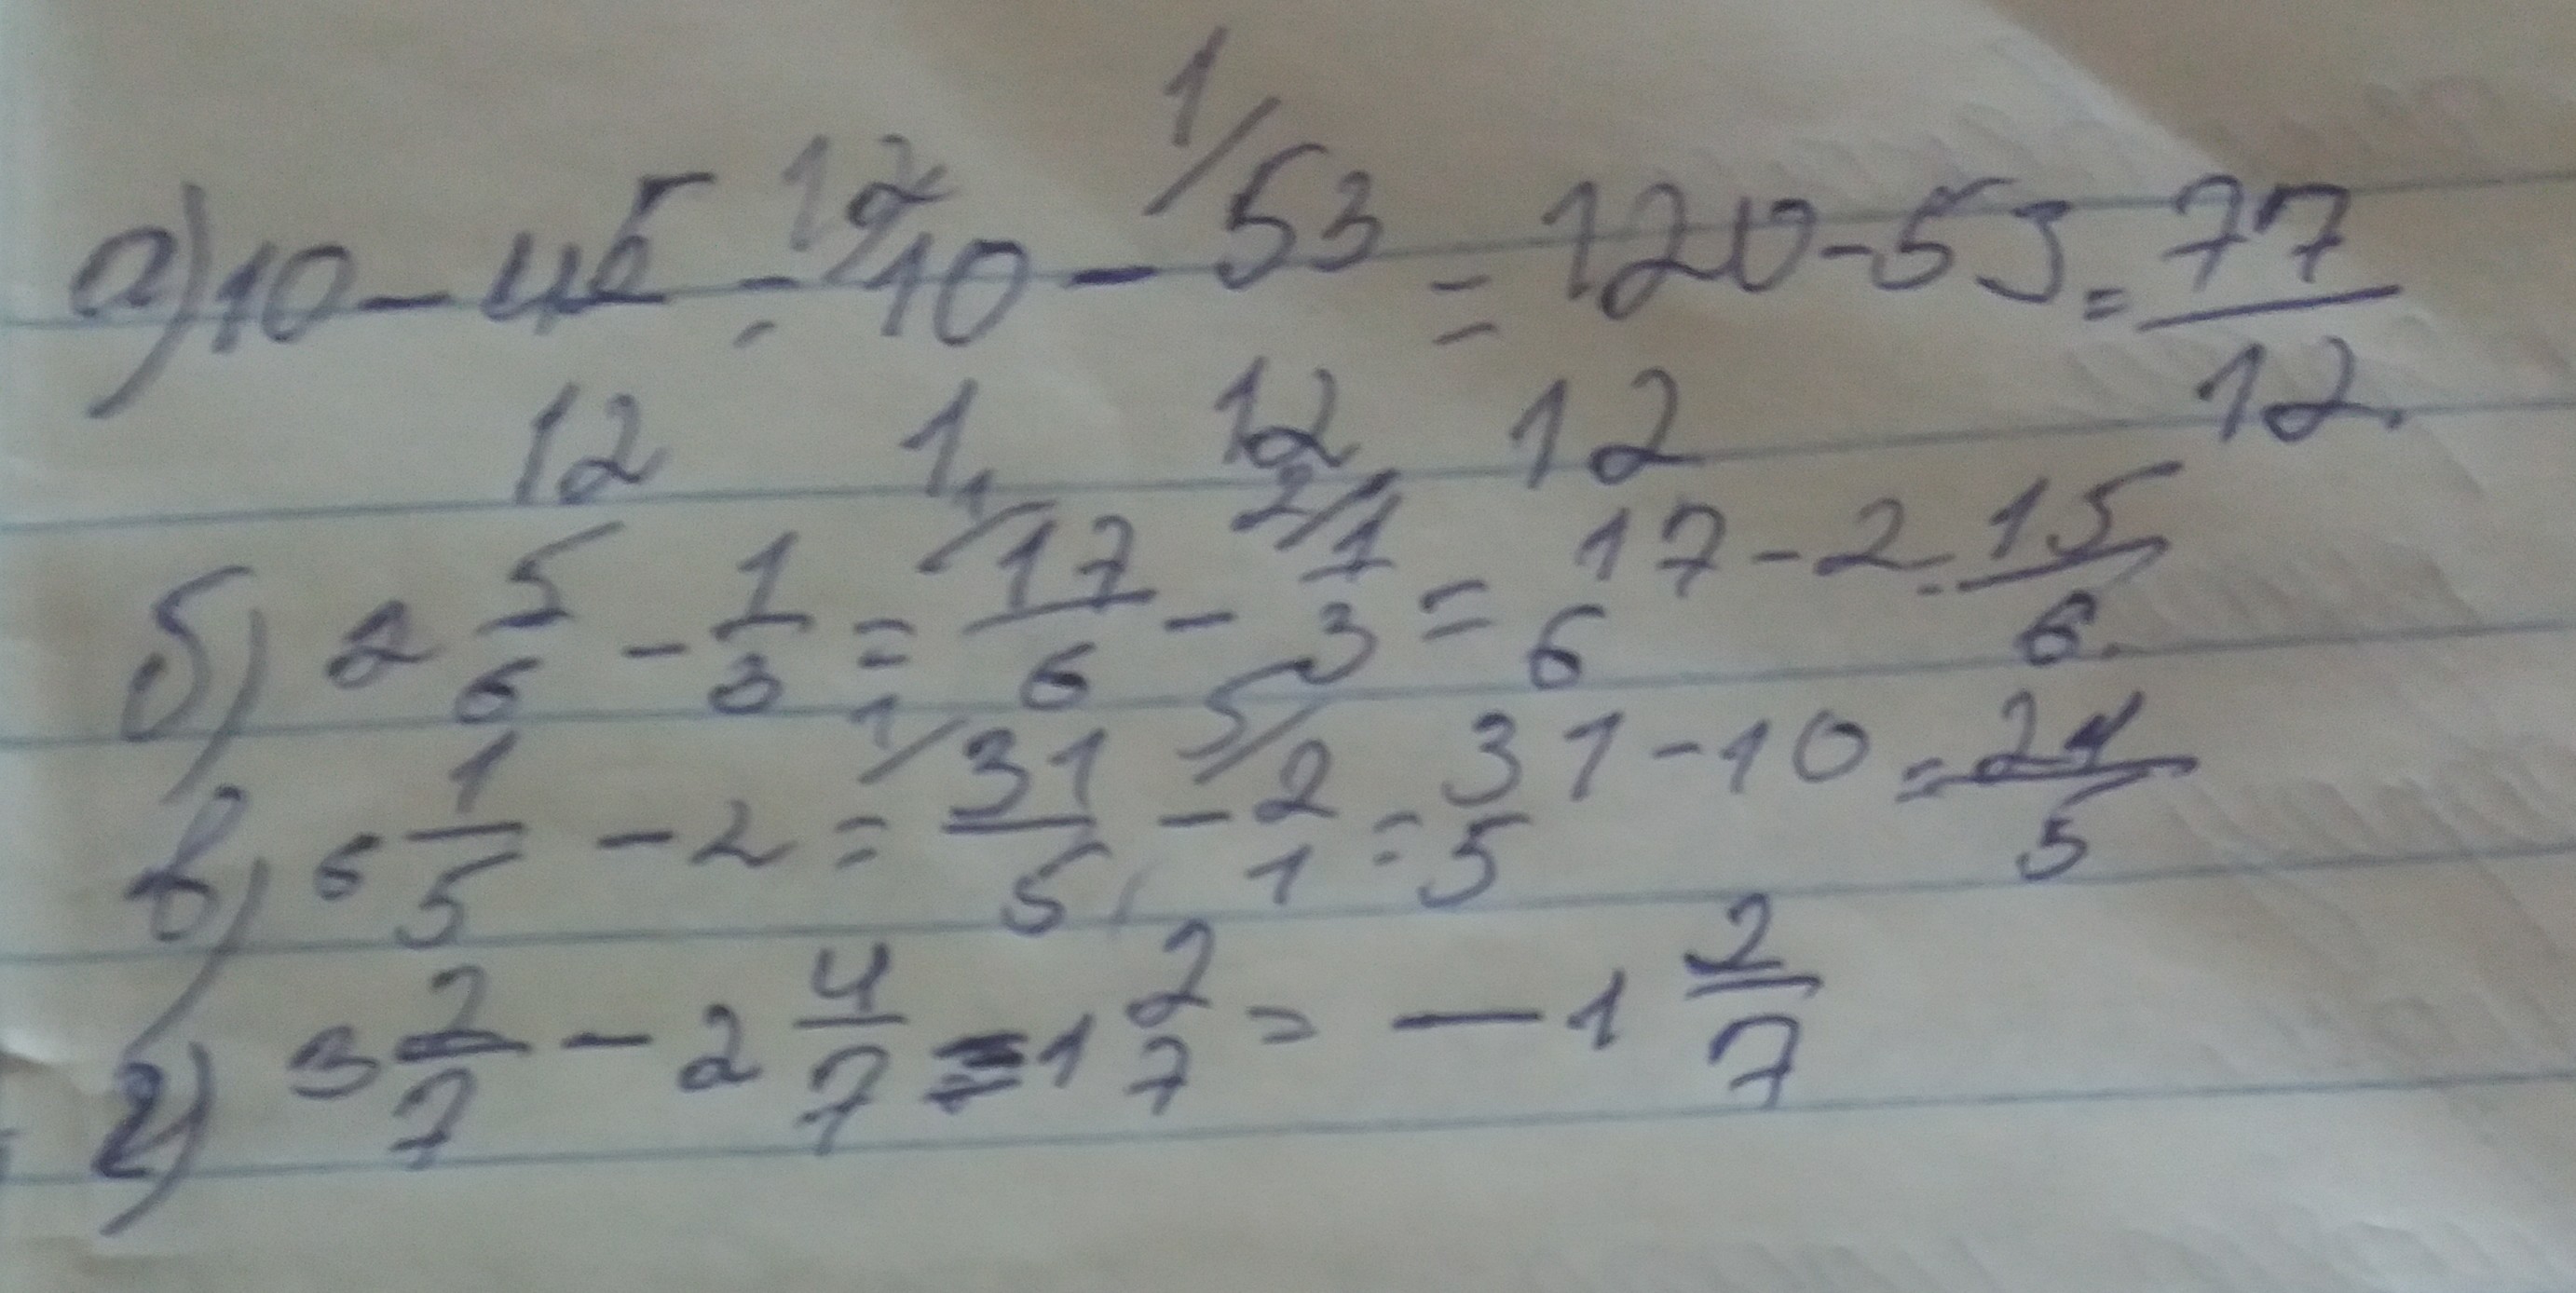 а) 10 - 4 5/12 = 12/ 10/1 - 1/ 53/12 = 120-53/12 = 77/12.
б) 2 5/6 - 1/3 = 1/ 17/6 - 2/ 1/3 = 17-2/6 = 15/6.
в) 6 1/5 - 2 = 1/ 31/5 - 5/ 2/1 = 31-10/5 = 21/5
г) 3 2/7 - 2 4/7 = 1 2/7 = - 1 2/7